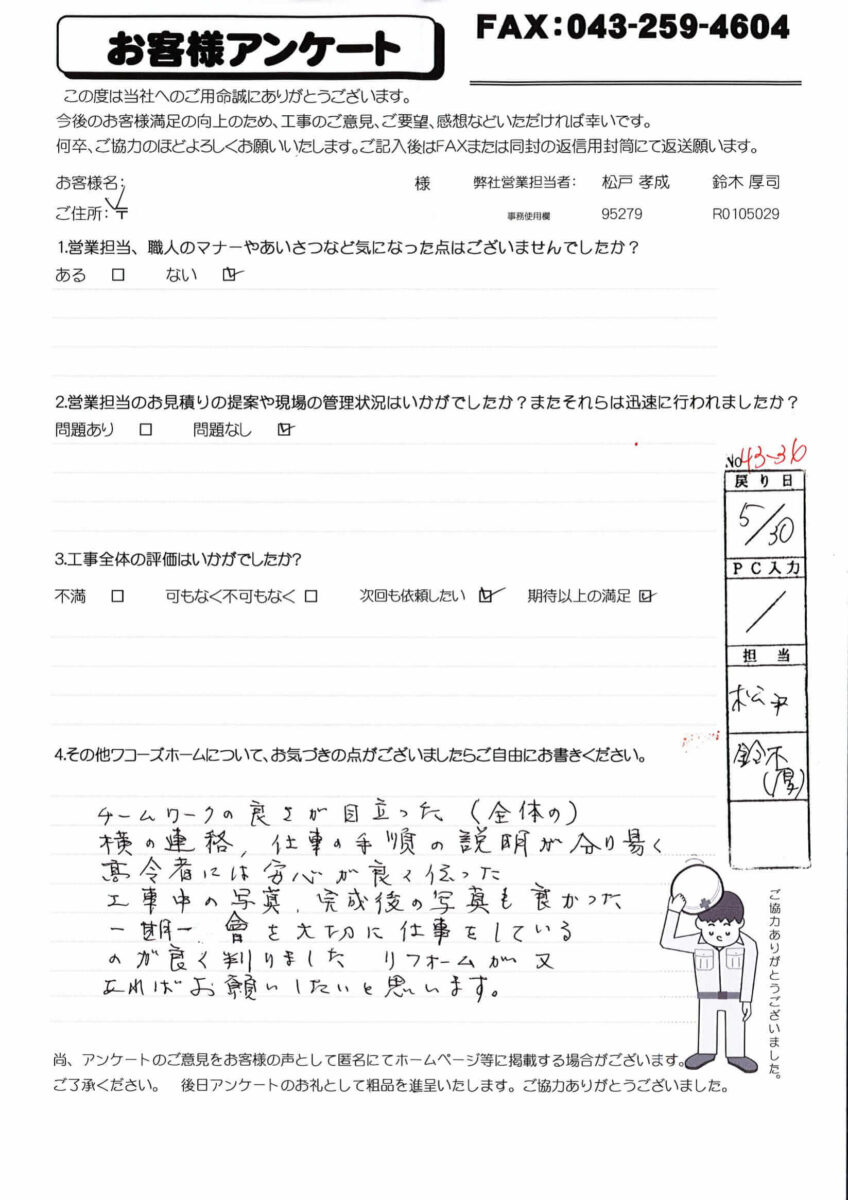 お客様アンケート
FAX:043-259-4604
この度は当社へのご用命誠にありがとうございます。
今後のお客様満足の向上のため、工事のご意見、ご要望、感想などいただければ幸いです。
何卒、ご協力のほどよろしくお願いいたします。ご記入後はFAXまたは同封の返信用封筒にて返送願います。
お客様名: 様 弊社営業担当者: 松戸 孝成 鈴木 厚司
ご住所:〒 事務使用欄 95279 R0105029
1.営業担当、職人のマナーやあいさつなど気になった点はございませんでしたか?
ある □ ない ☑
2.営業担当のお見積りの提案や現場の管理状況はいかがでしたか?またそれらは迅速に行われましたか?
問題あり □ 問題なし ☑
No43-36
戻り日
5/30
PC入力
/
担当
松戸
鈴木
(厚)
3.工事全体の評価はいかがでしたか?
不満 □ 可もなく不可もなく □ 次回も依頼したい ☑ 期待以上の満足 ☑
4.その他ワコーズホームについて、お気づきの点がございましたらご自由にお書きください。
チームワークの良さが目立った(全体の)
横の連絡,仕事の手順の説明が分り易く
高令者には安心が良く伝った
工事中の写真、完成後の写真も良かった
一期一會を大切に仕事をしている
のが良く判りました リフォームが又
あればお願いしたいと思います。
ご協力ありがとうございました。
尚、アンケートのご意見をお客様の声として匿名にてホームページ等に掲載する場合がございます。
ご了承ください。 後日アンケートのお礼として粗品を進呈いたします。ご協力ありがとうございました。